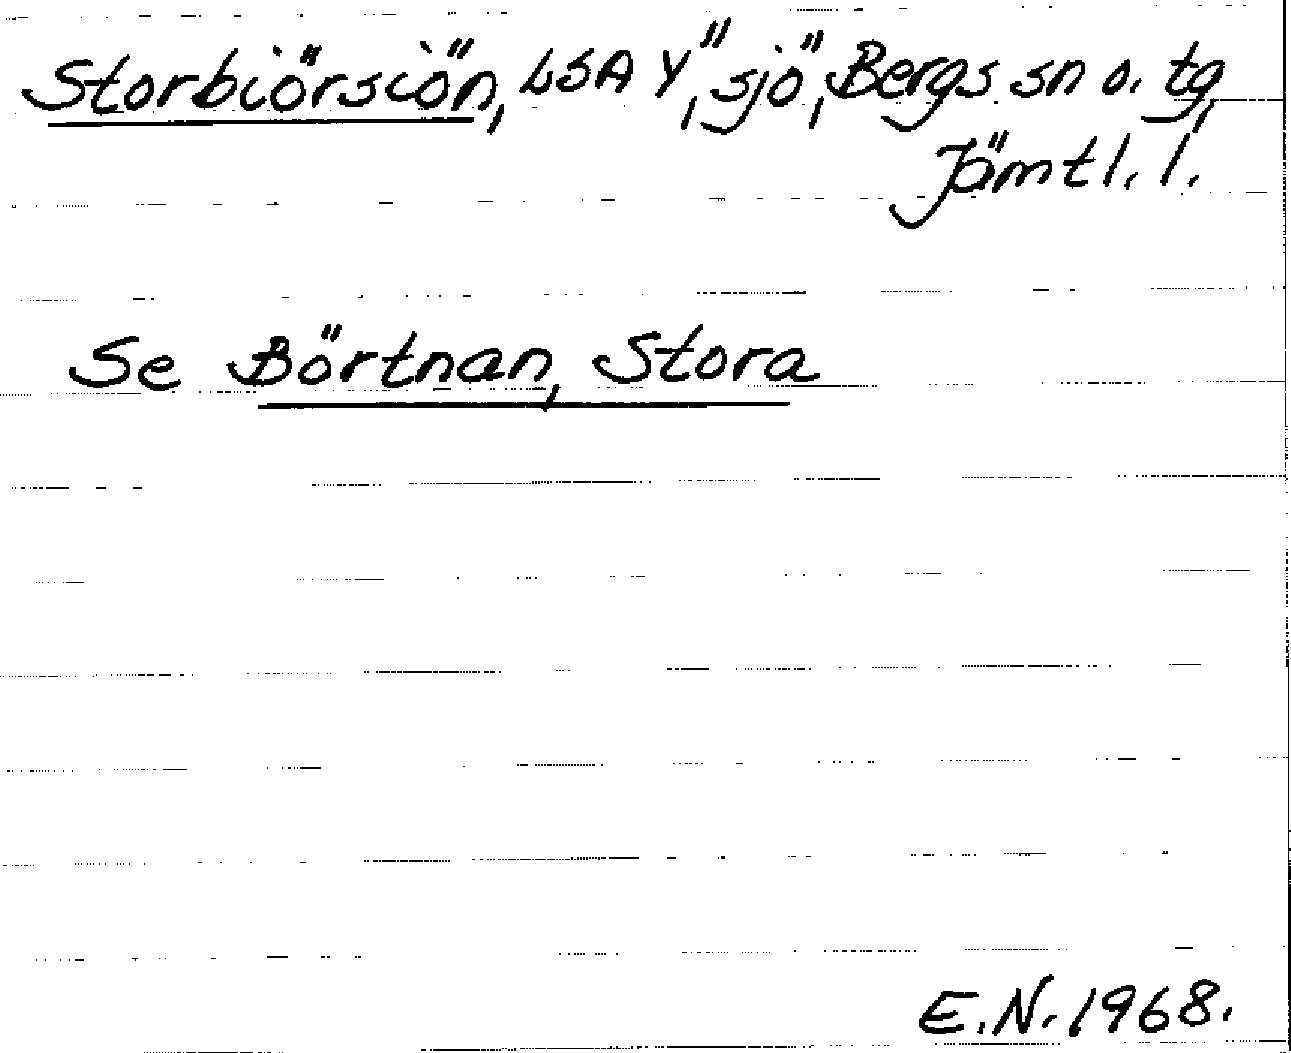 Storbiörsiön, LSA Y", sjö", Bergs sn o. tg,
Jämtl. l.
Se Börtnan, Stora
E.N. 1968.